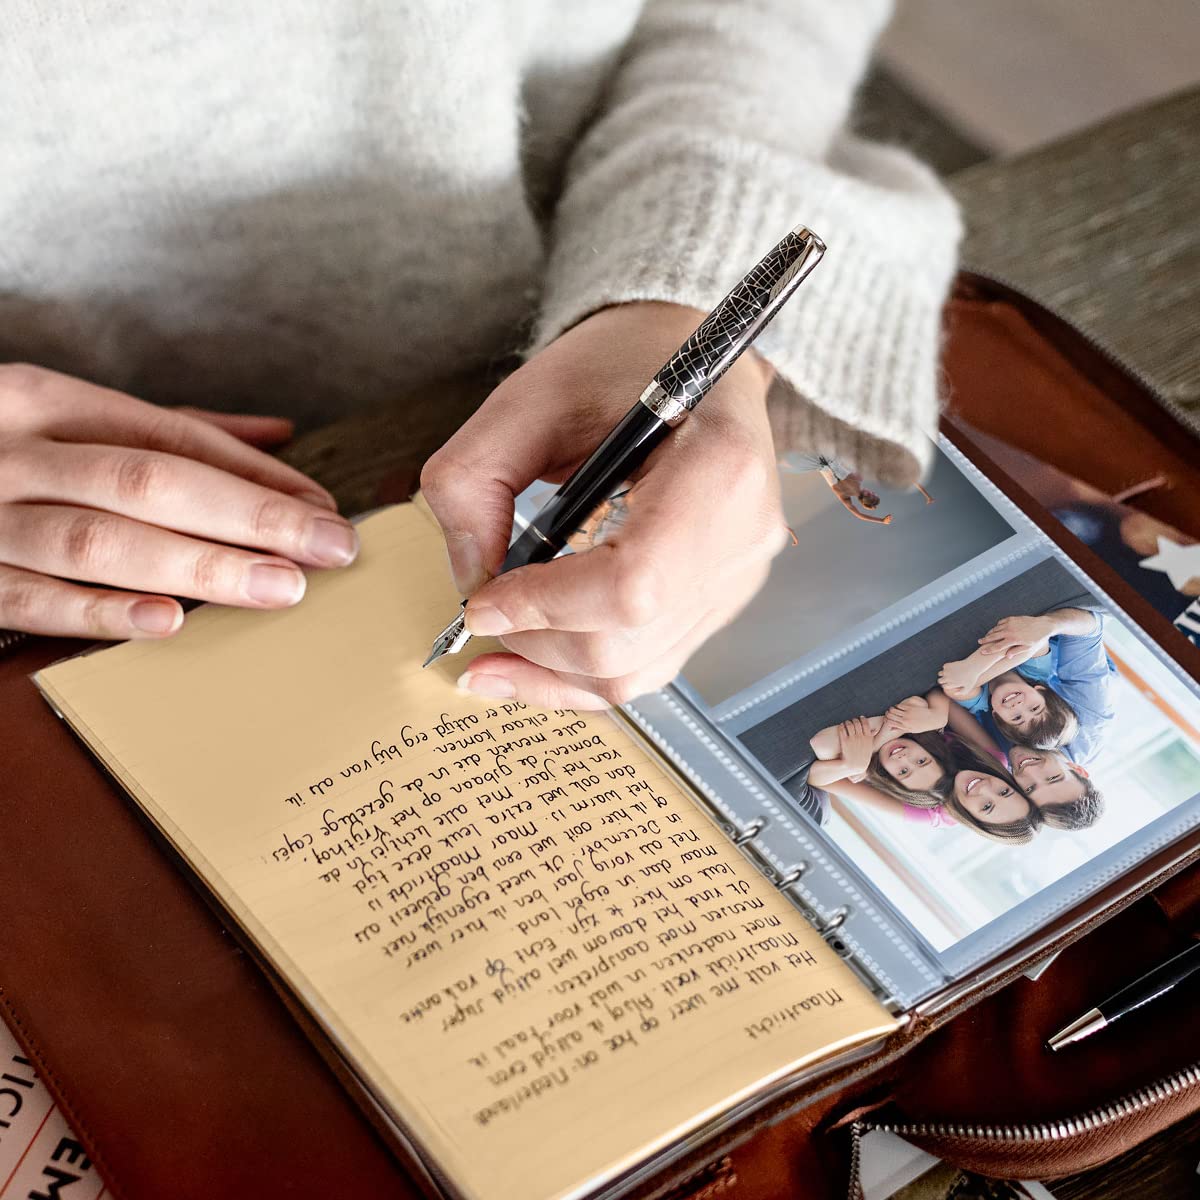 Maastricht
Het valt me weer op hoe on-Nederlands
Maastricht voelt. Alsof ik altijd even
moet nadenken in wat voor taal ik
mensen moet aanspreken.
Ik vind het daarom wel altijd super
leuk om hier te zijn. Echt op vakantie
maar dan in eigen land.
Net als vorig jaar ben ik eigenlijk hier weer
in December. Ik weet niet als
of ik hier ooit wel eens ben geweest als
het warm is. Maar Maastricht is
dan ook wel extra leuk deze tijd
van het jaar. Met alle lichtjes in de
bomen, de glbaan op het Vrijthof,
alle mensen die in de gezellige cafés
bij elkaar komen.
word er altijd erg blij van als ik